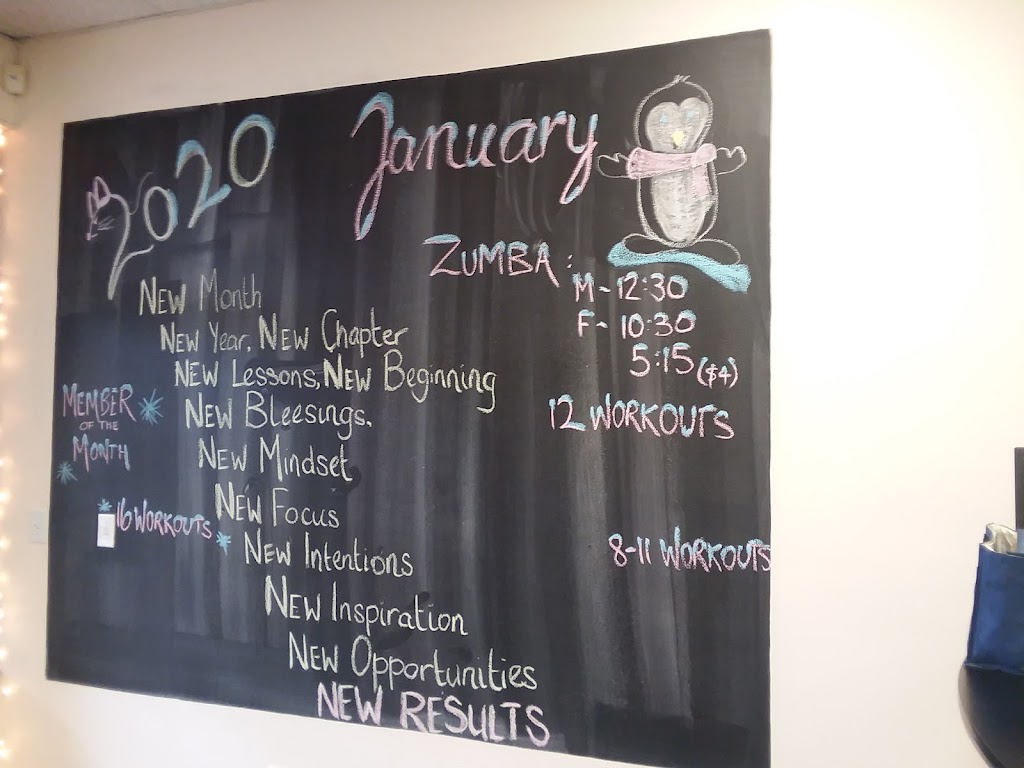 2020
January
ZUMBA:
M - 12:30
F - 10:30
5:15 ($4)
NEW Month
NEW Year, NEW Chapter
NEW Lessons, NEW Beginning
NEW Bleesings.
NEW Mindset
NEW Focus
NEW Intentions
NEW Inspiration
NEW Opportunities
NEW RESULTS
MEMBER
OF THE
MONTH
16 WORKOUTS
12 WORKOUTS
8-11 WORKOUTS